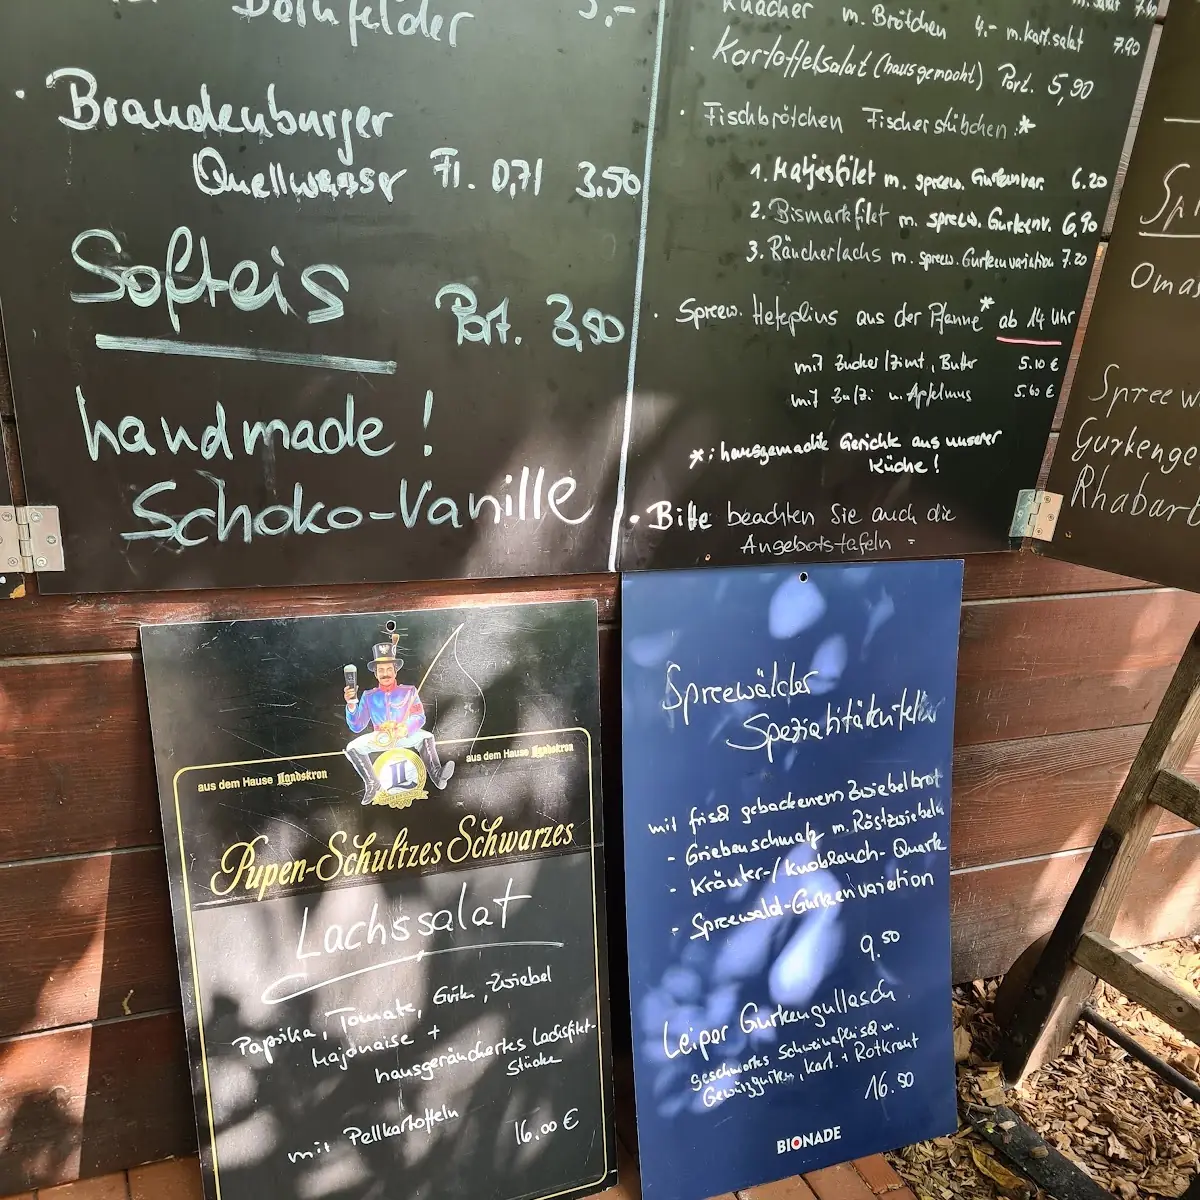 Dornfelder 5,-
· Brandenburger
Quellwasser Fl. 0,7l 3.50
Softeis
Port. 3,50
handmade!
Schoko-Vanille
Knacker m. Brötchen 4.- m. kart.salat 7.90
· Kartoffelsalat (hausgemacht) Port. 5,90
· Fischbrötchen Fischerstübchen *
1. Matjesfilet m. spreew. Gurkenvar. 6.20
2. Bismarkfilet m. spreew. Gurkenv. 6,90
3. Räucherlachs m. spreew. Gurkenvariation 7.20
· Spreew. Hefeplins aus der Pfanne* ab 14 Uhr
mit Zucker/Zimt, Butter 5.10 €
mit Zu/Zi u. Apfelmus 5.60 €
*: hausgemachte Gerichte aus unserer
Küche!
· Bitte beachten Sie auch die
Angebotstafeln
Omas
Spreew
Gurkenge
Rhabarb
aus dem Hause Landskron
aus dem Hause Landskron
Pupen-Schultzes Schwarzes
Lachssalat
Paprika, Tomate, Gurke, Zwiebel
Majonaise +
hausgeräuchertes Lachsfilet-
stücke
mit Pellkartoffeln
16.00 €
Spreewälder
Spezialitätenteller
mit frisch gebackenem Zwiebelbrot
- Griebenschmalz m. Röstzwiebeln
- Kräuter-/Knoblauch-Quark
- Spreewald-Gurkenvariation
9.50
Leiper Gurkengullasch
geschmortes Schweinefleisch m.
Gewürzgurken, Kart. + Rotkraut
16.50
BIONADE